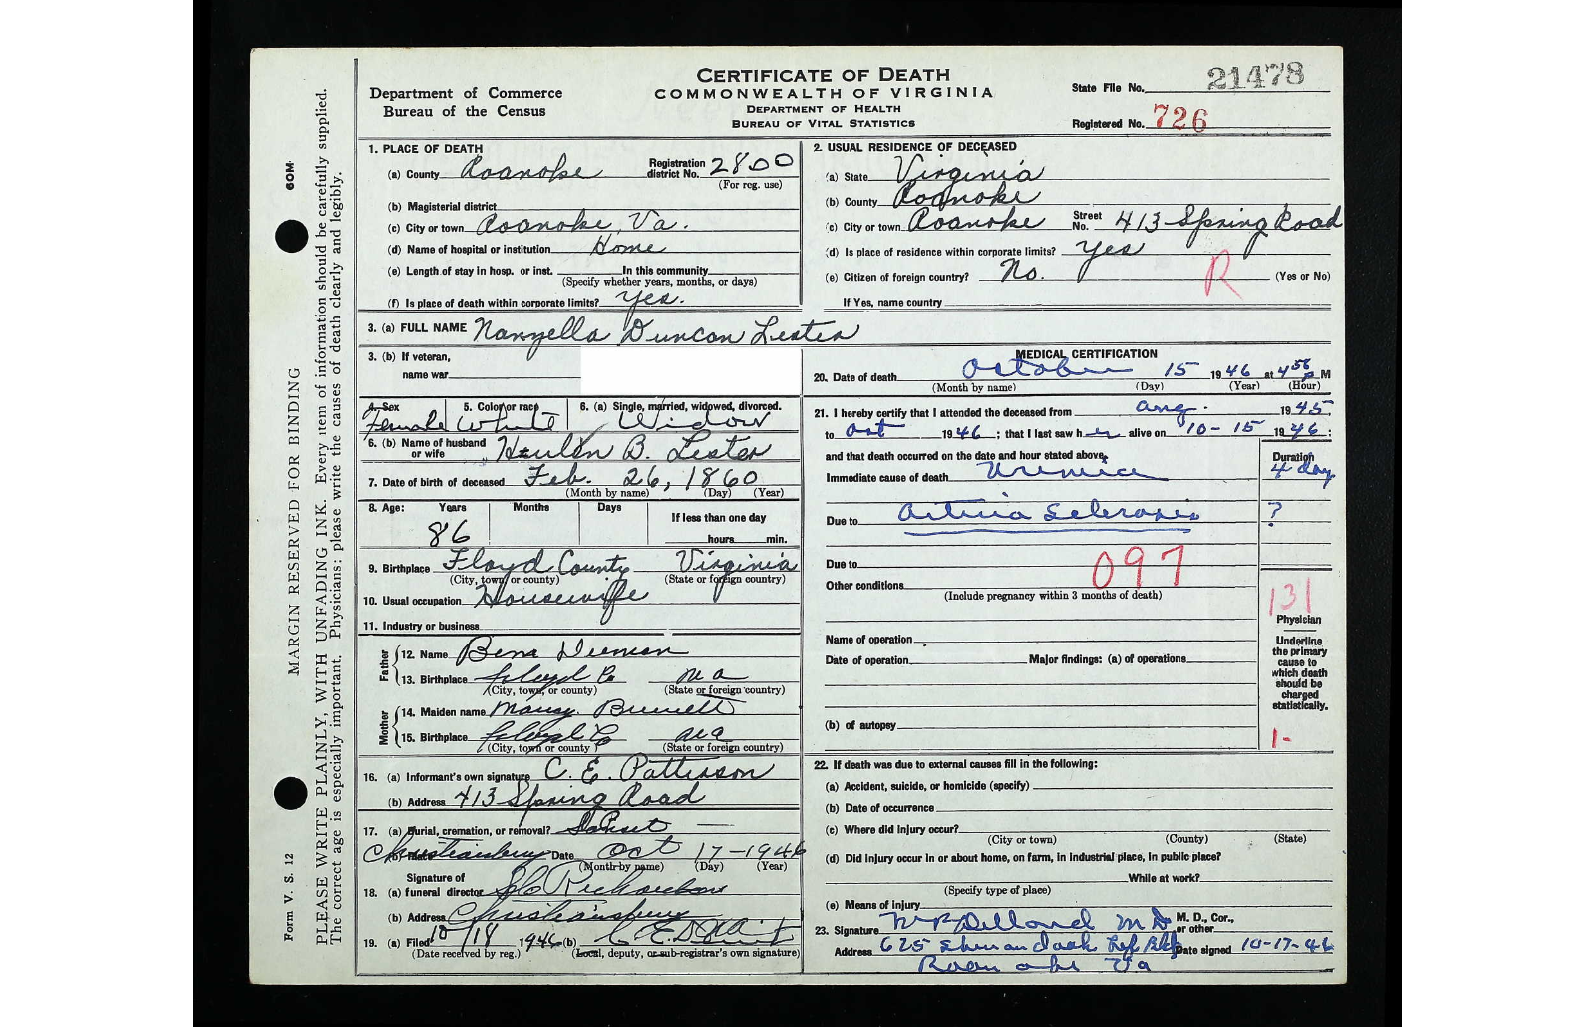 CERTIFICATE OF DEATH
COMMONWEALTH OF VIRGINIA
DEPARTMENT OF HEALTH
BUREAU OF VITAL STATISTICS
Department of Commerce
Bureau of the Census
State File No. 21478
Registered No. 726
1. PLACE OF DEATH
(a) County Roanoke Registration district No. 2800
(For reg. use)
(b) Magisterial district
(c) City or town Roanoke, Va.
(d) Name of hospital or institution Home
(e) Length of stay in hosp. or inst. In this community
(Specify whether years, months, or days)
(f) Is place of death within corporate limits? Yes.
2. USUAL RESIDENCE OF DECEASED
(a) State Virginia
(b) County Roanoke
(c) City or town Roanoke Street No. 413 Spring Road
(d) Is place of residence within corporate limits? Yes
(e) Citizen of foreign country? No. R (Yes or No)
If Yes, name country
3. (a) FULL NAME Nannella Duncan Lester
3. (b) If veteran,
name war
4. Sex 5. Color or race 6. (a) Single, married, widowed, divorced.
Female White Widow
6. (b) Name of husband or wife B. Lester
7. Date of birth of deceased Feb. 26, 1860
(Month by name) (Day) (Year)
8. Age: Years Months Days If less than one day
86 hours min.
9. Birthplace Floyd County Virginia
(City, town, or county) (State or foreign country)
10. Usual occupation Housewife
11. Industry or business
Father
12. Name
13. Birthplace Floyd Co
(City, town, or county) (State or foreign country)
Mother
14. Maiden name Burnett
15. Birthplace Floyd Co
(City, town or county) (State or foreign country)
16. (a) Informant's own signature C. E. Patterson
(b) Address 413 Spring Road
17. (a) Burial, cremation, or removal? Sunset
Christiansburg Date Oct 17-1946
(Month by name) (Day) (Year)
Signature of
18. (a) funeral director Richardson
(b) Address Christiansburg
19. (a) Filed 10/18 1946 (b)
(Date received by reg.) (Local, deputy, or sub-registrar's own signature)
MEDICAL CERTIFICATION
20. Date of death October 15 1946 at 4 56 P M
(Month by name) (Day) (Year) (Hour)
21. I hereby certify that I attended the deceased from Aug. 1945
to Oct 1946; that I last saw her alive on 10-15 1946;
and that death occurred on the date and hour stated above. Duration
Immediate cause of death Uremia 4 day
Due to Sclerosis ?
Due to 097
Other conditions
(Include pregnancy within 3 months of death)
131
Physician
Underline the primary cause to which death should be charged statistically.
1-
Name of operation
Date of operation Major findings: (a) of operations
(b) of autopsy
22. If death was due to external causes fill in the following:
(a) Accident, suicide, or homicide (specify)
(b) Date of occurrence
(c) Where did injury occur?
(City or town) (County) (State)
(d) Did injury occur in or about home, on farm, in industrial place, in public place?
While at work?
(Specify type of place)
(e) Means of injury
23. Signature MD M. D., Cor., or other
Address 625 Date signed 10-17-46
Roanoke Va
60M
MARGIN RESERVED FOR BINDING
PLEASE WRITE PLAINLY, WITH UNFADING INK. Every item of information should be carefully supplied.
The correct age is especially important. Physicians: please write the causes of death clearly and legibly.
Form V. S. 12